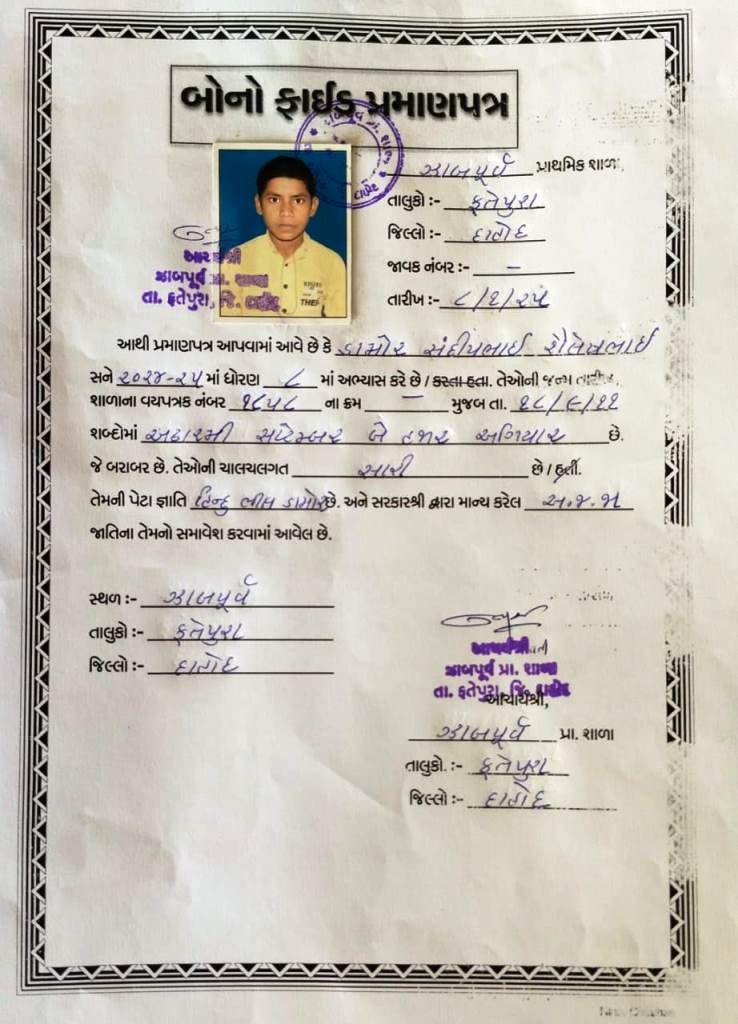 બોનો ફાઈડ પ્રમાણપત્ર
ઝાબપૂર્વ પ્રાથમિક શાળા,
તાલુકો :- ફતેપુરા
જિલ્લો :- દાહોદ
જાવક નંબર :- –
તારીખ :- ૮/૧/૨૫
આચાર્યશ્રી
ઝાબપૂર્વ પ્રા. શાળા
તા. ફતેપુરા, જિ. દાહોદ
આથી પ્રમાણપત્ર આપવામાં આવે છે કે ડામોર સંદીપભાઈ શૈલેષભાઈ
સને ૨૦૨૪-૨૫ માં ધોરણ ૮ માં અભ્યાસ કરે છે / કરતા હતા. તેઓની જન્મ તારીખ,
શાળાના વયપત્રક નંબર ૧૮૫૮ ના ક્રમ – મુજબ તા. ૧૮/૯/૧૧
શબ્દોમાં અઢારમી સપ્ટેમ્બર બે હજાર અગિયાર છે.
જે બરાબર છે. તેઓની ચાલચલગત સારી છે / હતી.
તેમની પેટા જ્ઞાતિ હિન્દુ ભીલ ડામોર છે. અને સરકારશ્રી દ્વારા માન્ય કરેલ અ.જ.જા
જાતિના તેમનો સમાવેશ કરવામાં આવેલ છે.
સ્થળ :- ઝાબપૂર્વ
તાલુકો :- ફતેપુરા
જિલ્લો :- દાહોદ
આચાર્યશ્રી
ઝાબપૂર્વ પ્રા. શાળા
તા. ફતેપુરા, જિ. દાહોદ
આચાર્યશ્રી,
ઝાબપૂર્વ પ્રા. શાળા
તાલુકો. :- ફતેપુરા
જિલ્લો :- દાહોદ